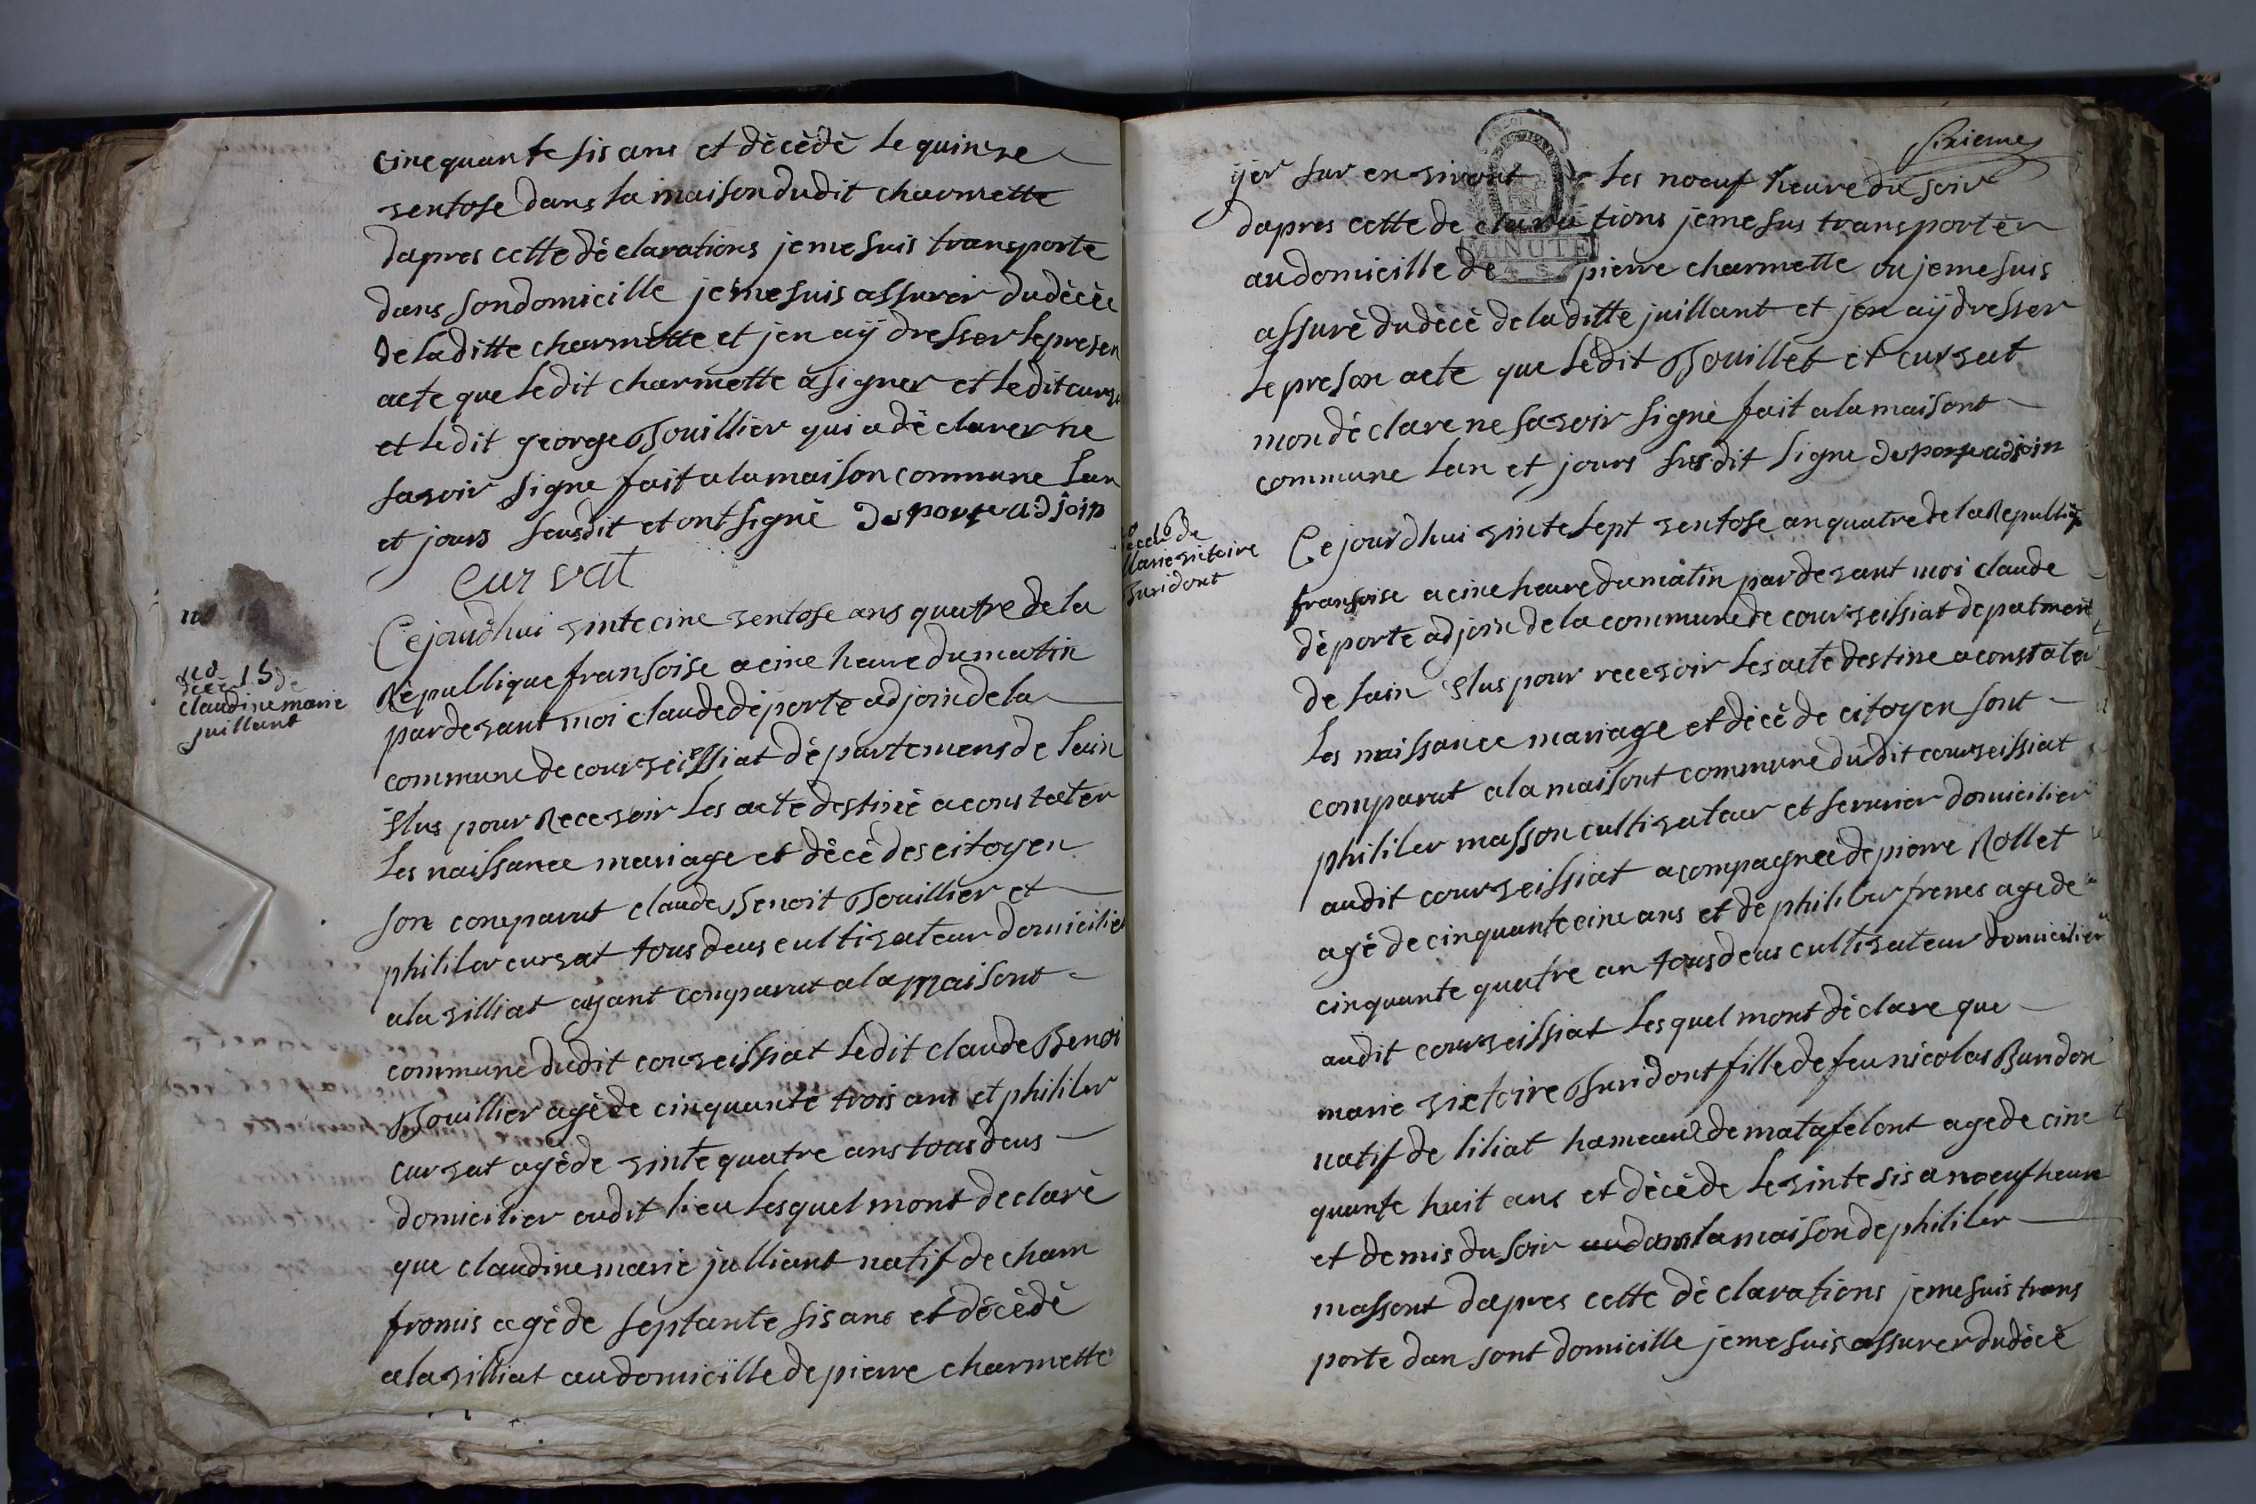 cinequante sis ans et dècèdè le quinze
ventose dans la maison dudit charmette
dapres cette dèclarations je me suis transporte
dans son domicille je me suis assurer du dècèe
de laditte charmette et jen aÿ dresser le presen
acte que ledit charmette a signer et ledit curva
et ledit george Bouillier qui a dèclarer ne
savoir signe fait a la maison commune lan
et jours susdit et ont signè desporte adjoin
curvat
no
no 15
dècè de
claudine marie
juillant
Cejourdhui vinte cinc ventose ans quatre de la
Rèpullique fransoise a cinc heure du matin
par devant moi claude dèporte adjoin de la
commune de courveissiat dèpartemens de lain
èlus pour Recevoir les acte destinè a constater
les naissance mariage et dècè des citoyen
son comparut claude Benoit Bouillier et
philiber curvat tous deus cultivateur domicilier
a la villiat ayant comparut a la maisont
commune dudit courveissiat ledit claude Benoi
Bouillier agè de cinquante trois ans et philiber
curvat agè de vinte quatre ans tous deus
domicilier audit lieu lesquel mont declarè
que claudine marie julliant natif de cham
fromis agè de septante sis ans et dècèdè
a la villiat au domicille de pierre charmette
sixieme
ÿer sur en vivant les noeuf heure du soir
dapres cette declarations je me sus transportèr
MINUTE
au domicille de pierre charmette ou je me suis
assurè du dècè de laditte juillant et jen aÿ dresser
le preson acte que lèdit Bouillet et curvat
mon dèclare ne savoir signè fait a la maisont
commune lan et jours susdit signe desporte adjoin
no 16
dècè de
Marie victoire
Buridont
Cejourdhui vinte sept ventose an quatre de la Republiq
fransoise a cinc heure du matin par devant moi claude
dèporte adjoin de la commune de courveissiat depatment
de lain èlus pour recevoir les acte destine a constater
les naissance mariage et dècè de citoyen sont
comparut a la maisont commune dudit courveissiat
philiber masson cultivateur et serurier domicilier
audit courveissiat acompagnee de pierre Rollet
agè de cinquante cinc ans et de philiber frenes age de
cinquante quatre an tous deus cultivateur domicilier
audit courveissiat lesquel mont dèclare que
marie victoire Buridont fille de feu nicolas Buridon
natif de liliat hameaux de matafelont age de cinc
quante huit ans et dècède le vinte sis a noeuf heure
et demis du soir dans la maison de philiber
massont dapres cette dèclarations je me suis trans
porte dan sont domicille je me suis assurer du dècè